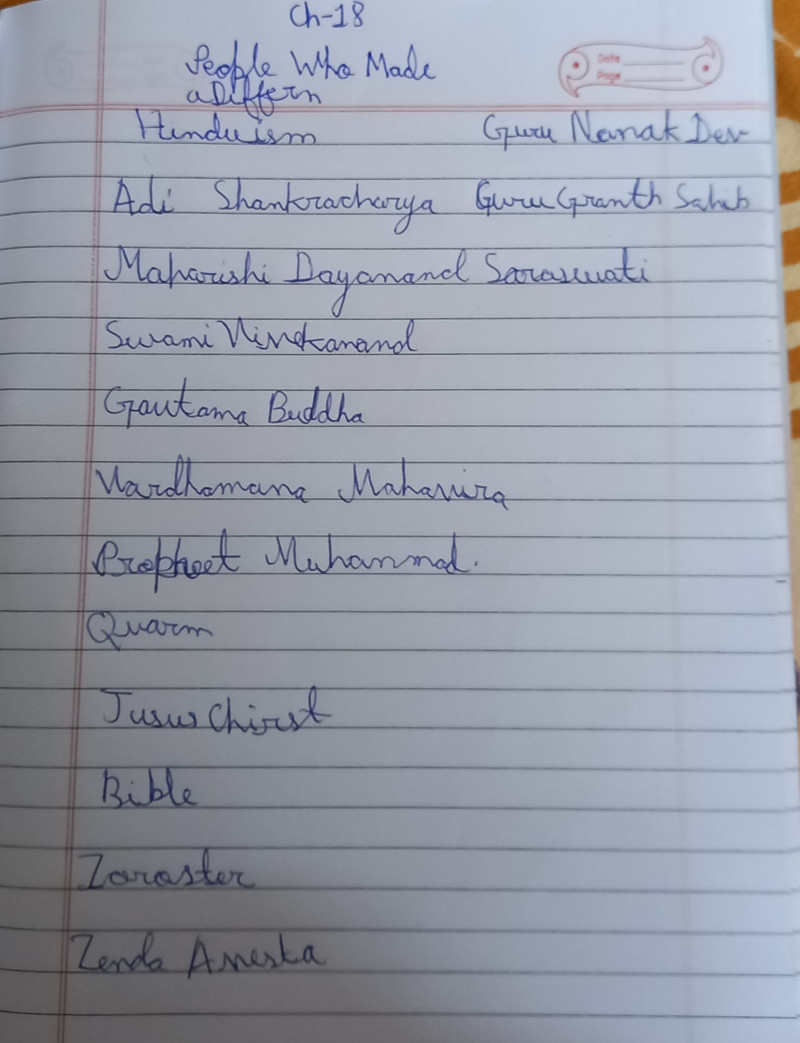 Ch-18
People Who Made
aDiffern
Date
Page
Hinduism Guru Nanak Dev
Adi Shankracharya Guru Granth Sahib
Maharishi Dayanand Saraswati
Swami Vivekanand
Gautama Buddha
Vardhamana Mahavira
Propheet Muhanmad.
Quarm
Jusus Chirst
Bible
Zoraster
Zenda Avesta